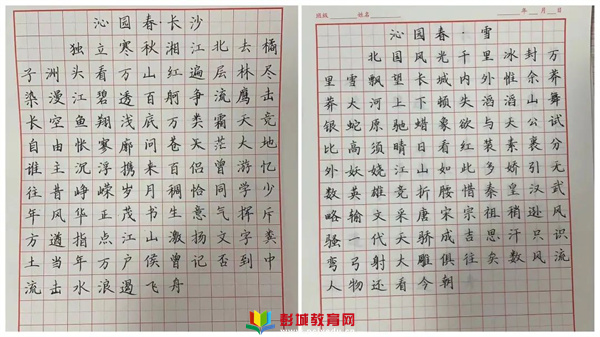 沁园春长沙
独立寒秋湘江北去橘
子洲头看万山红遍层林尽
染漫江碧透百舸争流鹰击
长空鱼翔浅底万类霜天竞
自由怅寥廓问苍茫大地
谁主沉浮携来百侣曾游忆
往昔峥嵘岁月稠恰同学少
年风华正茂书生意气挥斥
方遒指点江山激扬文字粪
土当年万户侯曾记否到中
流击水浪遏飞舟
班级 姓名 年 月 日
沁园春·雪
北国风光千里冰封万
里雪飘望长城内外惟余莽
莽大河上下顿失滔滔山舞
银蛇原驰蜡象欲与天公试
比高须晴日看红装素裹分
外妖娆江山如此多娇引无
数英雄竞折腰惜秦皇汉武
略输文采唐宗宋祖稍逊风
骚一代天骄成吉思汗只识
弯弓射大雕俱往矣数风流
人物还看今朝
彭城教育网